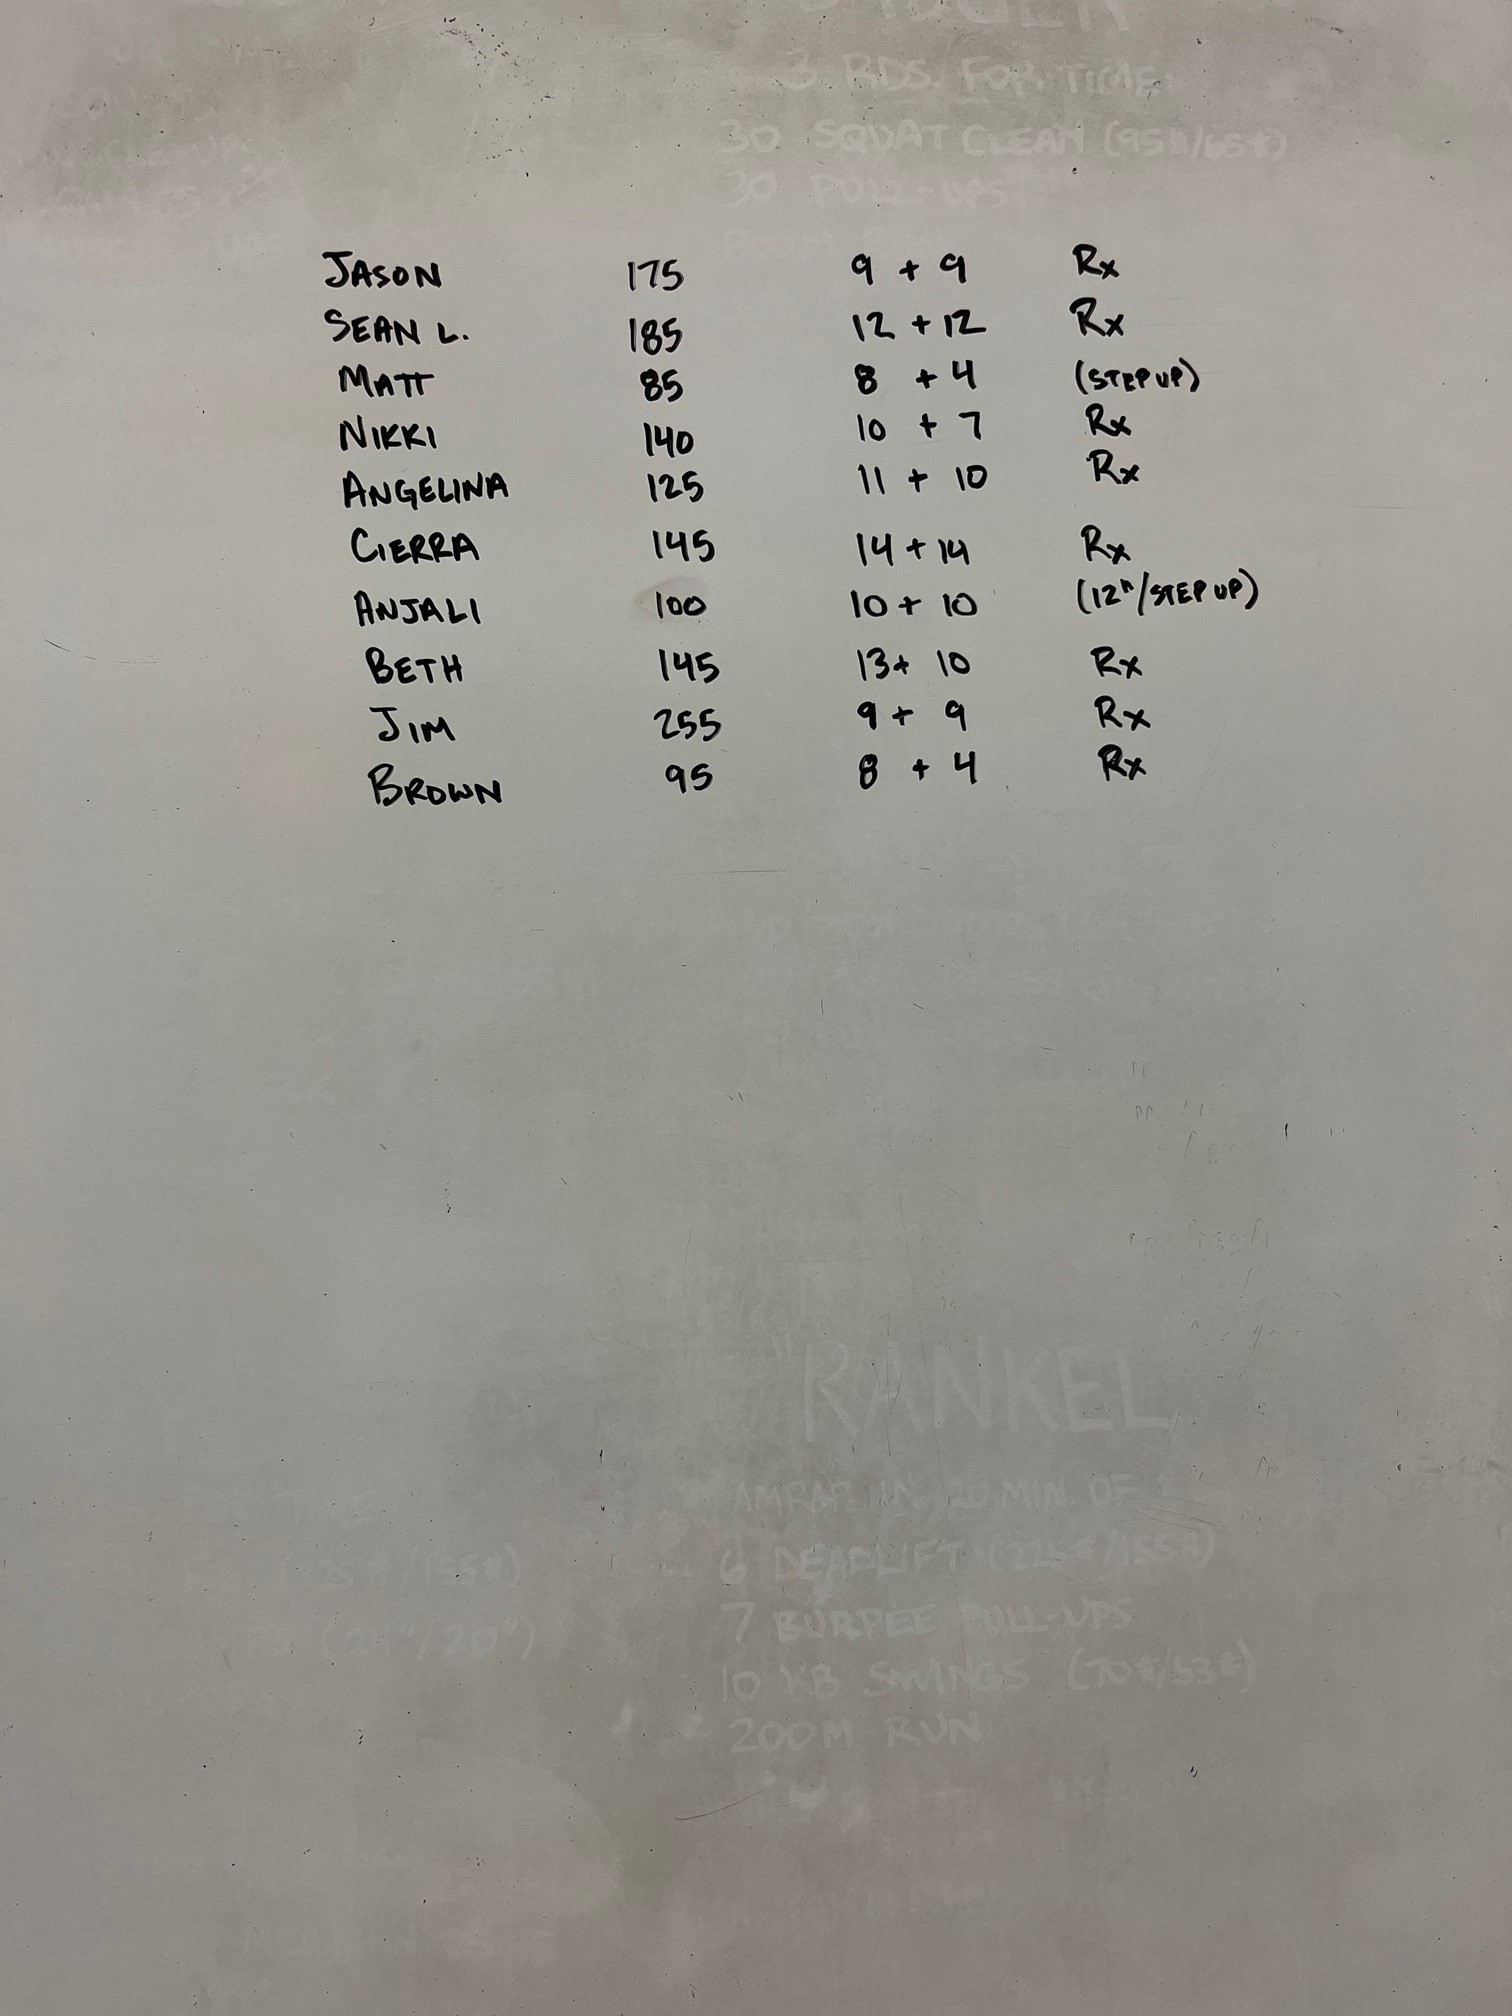 3 RDS. FOR TIME:
30 SQUAT CLEAN (95#/65#)
30 PULL-UPS
JASON 175 9 + 9 Rx
SEAN L. 185 12 + 12 Rx
MATT 85 8 + 4 (STEP UP)
NIKKI 140 10 + 7 Rx
ANGELINA 125 11 + 10 Rx
CIERRA 145 14 + 14 Rx
ANJALI 100 10 + 10 (12"/STEP UP)
BETH 145 13 + 10 Rx
JIM 255 9 + 9 Rx
BROWN 95 8 + 4 Rx
"RANKEL
AMRAP IN 20 MIN. OF:
6 DEADLIFT (225#/155#)
7 BURPEE PULL-UPS
10 KB SWINGS (70#/53#)
200M RUN
(225#/155#)
(24"/20")